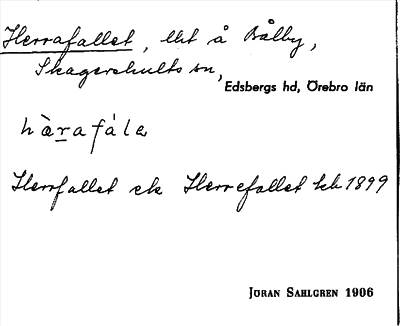 Herrafallet, lht å Bålby,
Skagershults sn,
Edsbergs hd, Örebro län
hæ̀rafála
Herrfallet ek Herrefallet kb 1899
Jöran Sahlgren 1906